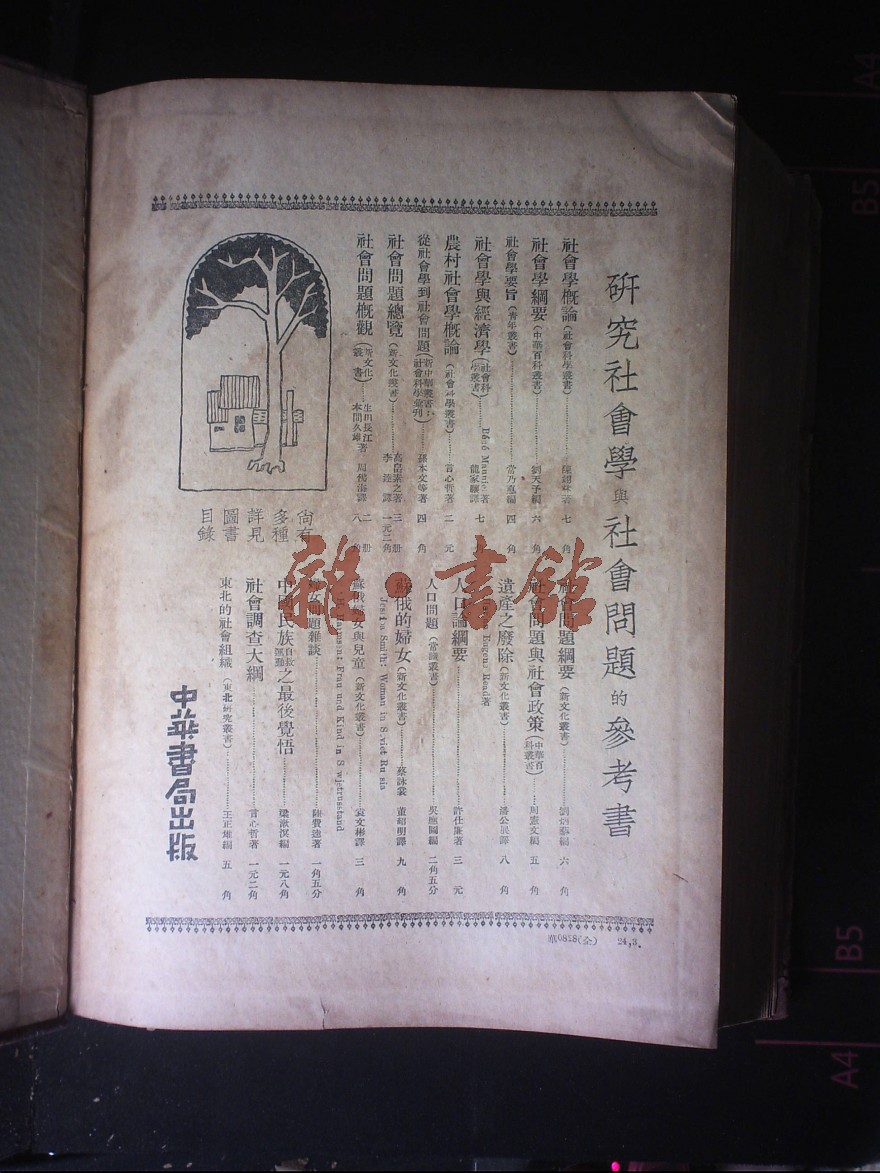 研究社會學與社會問題的參考書
社會學概論(社會科學叢書)…… 七角
社會學綱要(中華百科叢書)……劉天予編 六角
社會學要旨(青年叢書)……常乃惪編 四角
社會學與經濟學(社會科學叢書)…… René Maunie著 龍家驤譯 七角
農村社會學概論(社會科學叢書)……言心哲著 二元
從社會學到社會問題(新中華叢書:社會科學彙刊)……孫本文等著 四角
社會問題總覽(新文化叢書)……高畠素之著 李達譯 三册 一元二角
社會問題概觀(新文化叢書)……生田長江 本間久雄著 周佛海譯 二册 八角
社會問題綱要(新文化叢書)……劉炳藜編 六角
社會問題與社會政策(中華百科叢書)……周憲文編 五角
遺產之廢除(新文化叢書)…… Eugene Read著 潘公展譯 八角
人口論綱要……許仕廉著 三元
人口問題(常識叢書)……吳應圖編 二角五分
蘇俄的婦女(新文化叢書)……蔡詠裳 董紹明譯 九角
Jessica Smith: Woman in Soviet Russia
蘇俄婦女與兒童(新文化叢書)……袁文彬譯 三角
Frau und Kind in Sowjetrussland
婦女問題雜談……陸費逵著 一角五分
中國民族自救運動之最後覺悟……梁漱溟編 一元八角
社會調查大綱……言心哲著 一元二角
東北的社會組織(東北研究叢書)……王正雄編 五角
尚有
多種
詳見
圖書
目錄
中華書局出版
華0828(全) 24,3.
雜·書館
A4
B5
B5
A4